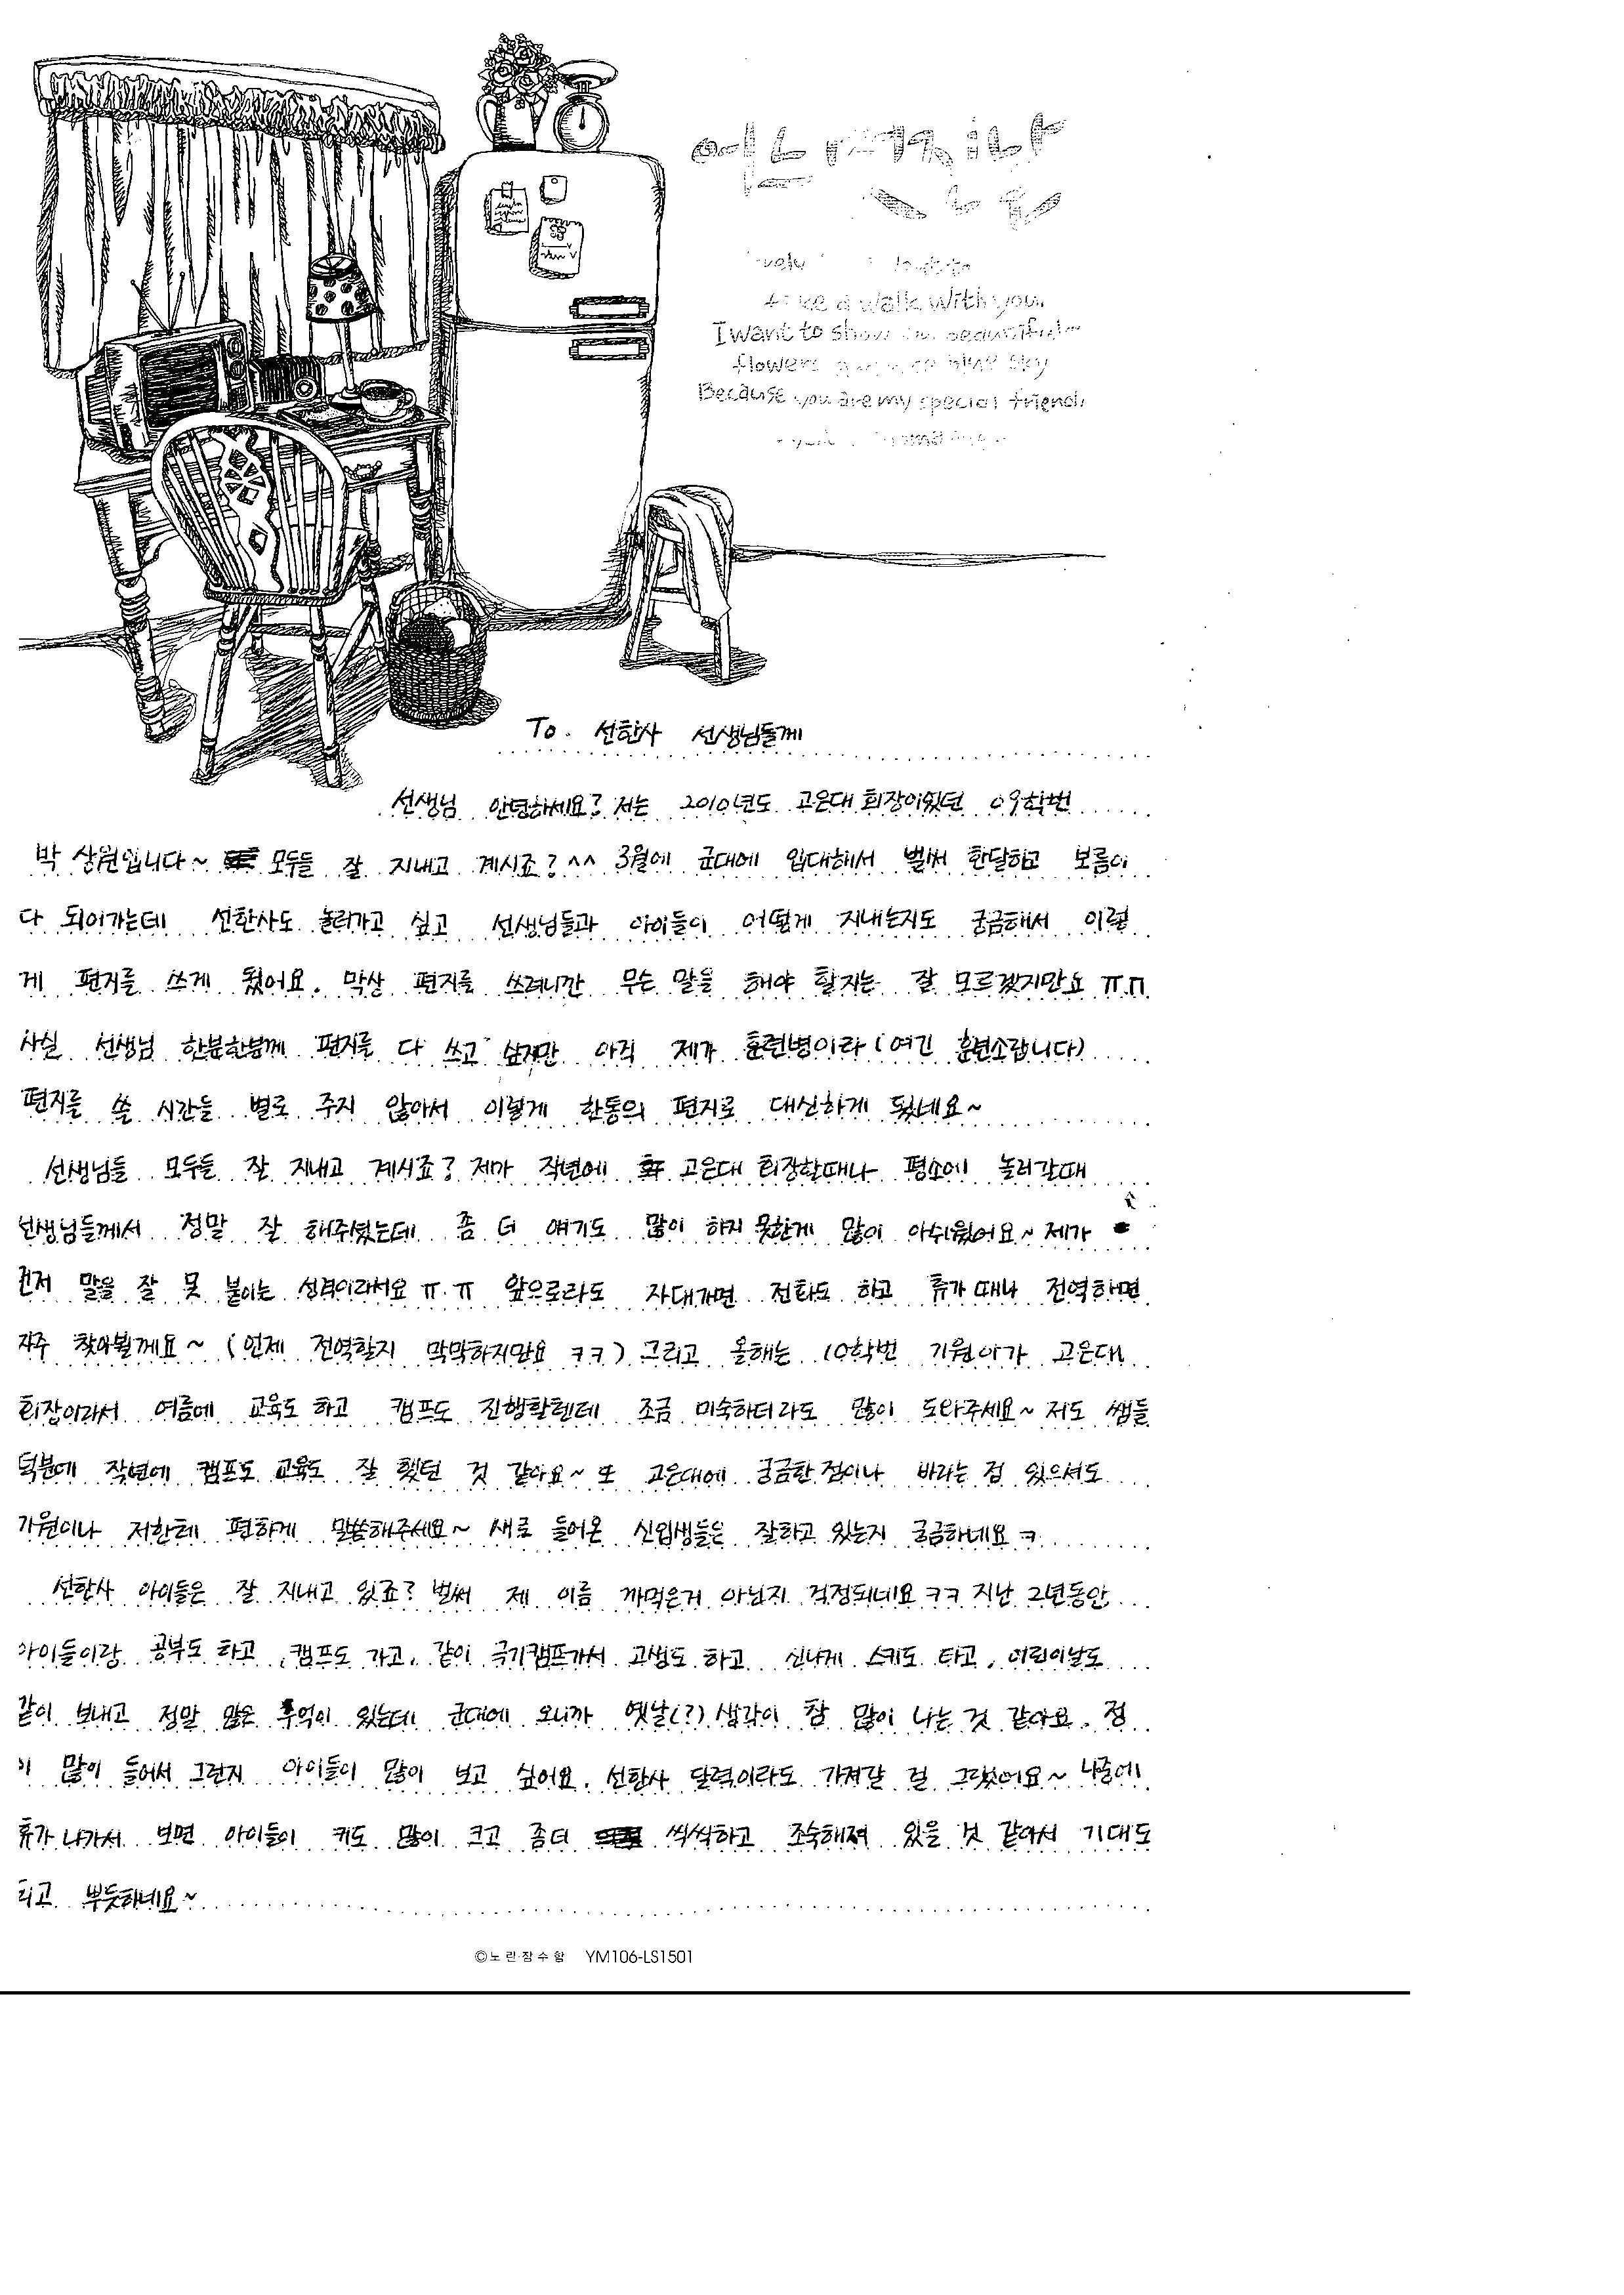 take a walk with you.
I want to show
flowers blue sky
Because you are my special friend.
To. 선한사 선생님들께
선생님 안녕하세요? 저는 2010년도 고은대 회장이었던 09학번
박상원입니다~ 모두들 잘 지내고 계시죠? ^^ 3월에 군대에 입대해서 벌써 한달하고 보름이
다 되어가는데 선한사도 놀러가고 싶고 선생님들과 아이들이 어떻게 지내는지도 궁금해서 이렇
게 편지를 쓰게 됐어요. 막상 편지를 쓰려니깐 무슨 말을 해야 할지는 잘 모르겠지만요 ㅠ.ㅠ
사실 선생님 한분한분께 편지를 다 쓰고 싶지만 아직 제가 훈련병이라 (여긴 훈련소랍니다)
편지를 쓸 시간을 별로 주지 않아서 이렇게 한통의 편지로 대신하게 됐네요~
선생님들 모두들 잘 지내고 계시죠? 제가 작년에 고은대 회장할때나 평소에 놀러갈때
선생님들께서 정말 잘 해주셨는데 좀 더 얘기도 많이 하지 못한게 많이 아쉬웠어요~ 제가
먼저 말을 잘 못 붙이는 성격이라서요 ㅠ.ㅠ 앞으로라도 자대가면 전화도 하고 휴가 때나 전역하면
자주 찾아뵐께요~ (언제 전역할지 막막하지만요 ㅋㅋ) 그리고 올해는 10학번 기원아가 고은대
회장이라서 여름에 교육도 하고 캠프도 진행할텐데 조금 미숙하더라도 많이 도와주세요~ 저도 쌤들
덕분에 작년에 캠프도 교육도 잘 했던 것 같아요~ 또 고은대에 궁금한 점이나 바라는 점 있으셔도
기원이나 저한테 편하게 말씀해주세요~ 새로 들어온 신입생들은 잘하고 있는지 궁금하네요 ㅋ
선한사 아이들은 잘 지내고 있죠? 벌써 제 이름 까먹은거 아닌지 걱정되네요 ㅋㅋ 지난 2년동안
아이들이랑 공부도 하고, 캠프도 가고, 같이 극기캠프가서 고생도 하고 신나게 스키도 타고, 어린이날도
같이 보내고 정말 많은 추억이 있는데 군대에 오니까 옛날(?) 생각이 참 많이 나는 것 같아요. 정
이 많이 들어서 그런지 아이들이 많이 보고 싶어요. 선한사 달력이라도 가져갈 걸 그랬어요~ 나중에
휴가 나가서 보면 아이들이 키도 많이 크고 좀더 씩씩하고 조숙해져 있을 것 같아서 기대도
되고 뿌듯하네요~
©노란잠수함 YM106-LS1501